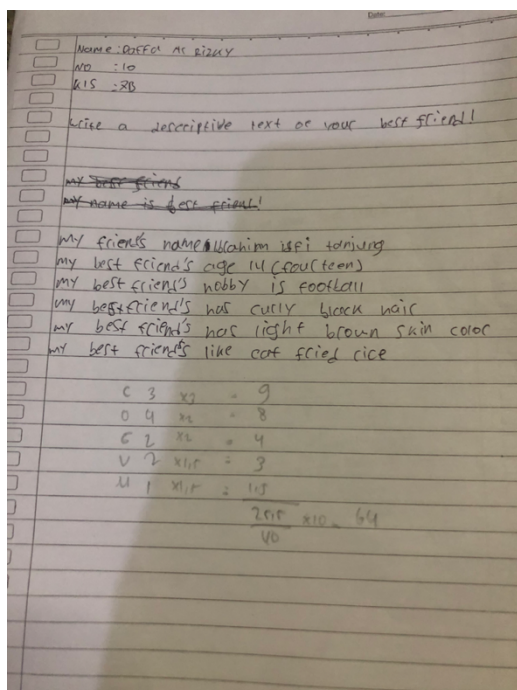 Date:
Name : Daffa Al Rizky
NO : 10
KIS : 7B
Write a descriptive text of your best friend!
my best friend
my name is best friend!
my friend's name Ibrahim isfi tanjung
my best friend's age 14 (fourteen)
my best friend's hobby is football
my best friend's has curly black hair
my best friend's has light brown skin color
my best friend's like eat fried rice
C 3 x3 = 9
O 4 x2 = 8
G 2 x2 = 4
V 2 x1,5 = 3
M 1 x1,5 = 1,5
25,5 x10 = 64
40